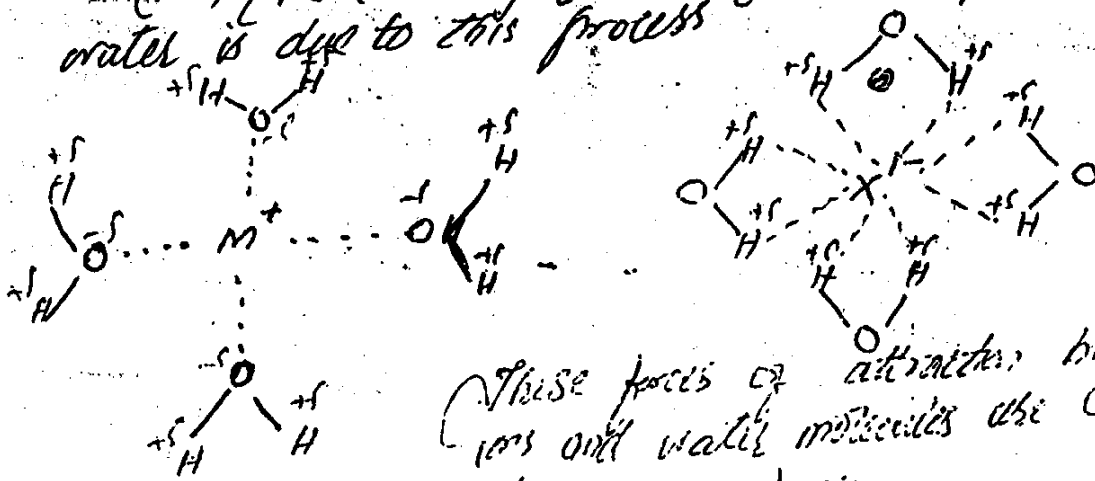 water is due to this process
+δ H H +δ
O -δ
+δ H
O -δ
+δ H
M+
-δ O
+δ H
+δ H
-δ O
+δ H
+δ H
O
+δ H H +δ
+δ H
O
+δ H
X-
+δ H
O
+δ H
+δ H +δ H
O
These forces of attraction
ions and water molecules are